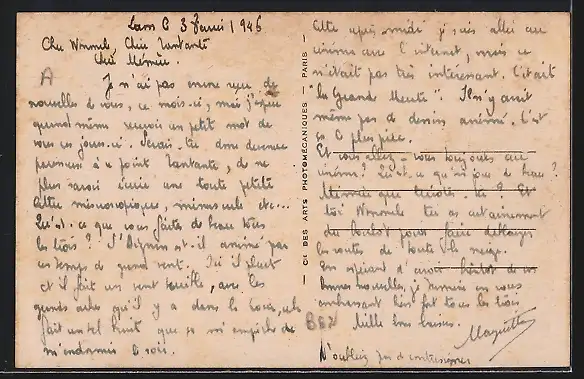 Laon le 3 Février 1946
Cher Nommeb, Chère Tantante
Chère Mémère.
Je n'ai pas encore reçu de
nouvelles de vous, ce mois-ci, mais j'espère
quand même recevoir un petit mot de
vous ces jours-ci. Serais-tu donc devenue
paresseuse à ce point Tantante, de ne
plus savoir écrire une toute petite
lettre microscopique, minuscule etc...
Qu'est-ce que vous faites de beau tous
les trois? est-il animé par
ces temps de grand vent. Ici il pleut
et il fait un vent terrible, avec les
grands arbres qu'il y a dans la cour, cela
fait un tel bruit que ça m'empêche de
m'endormir le soir.
Cette après-midi je suis allée au
cinéma avec l'internat, mais ce
n'était pas très intéressant. C'était
"la Grande Meute". Il n'y avait
même pas de dessins animés. C'est
ça le plus pire.
Et vous allez-vous toujours au
cinéma? Qu'est-ce qu'as joué de beau?
Mémère que dis-tu? Et
toi Nommeb tu as certainement
du boulot pour faire déblayer
les routes de toute la neige.
En espérant d'avoir bientôt de vos
bonnes nouvelles, je termine en vous
embrassant bien fort tous les trois
Mille bons baisers.
Maguette
N'oubliez pas de
Cie DES ARTS PHOTOMÉCANIQUES - PARIS